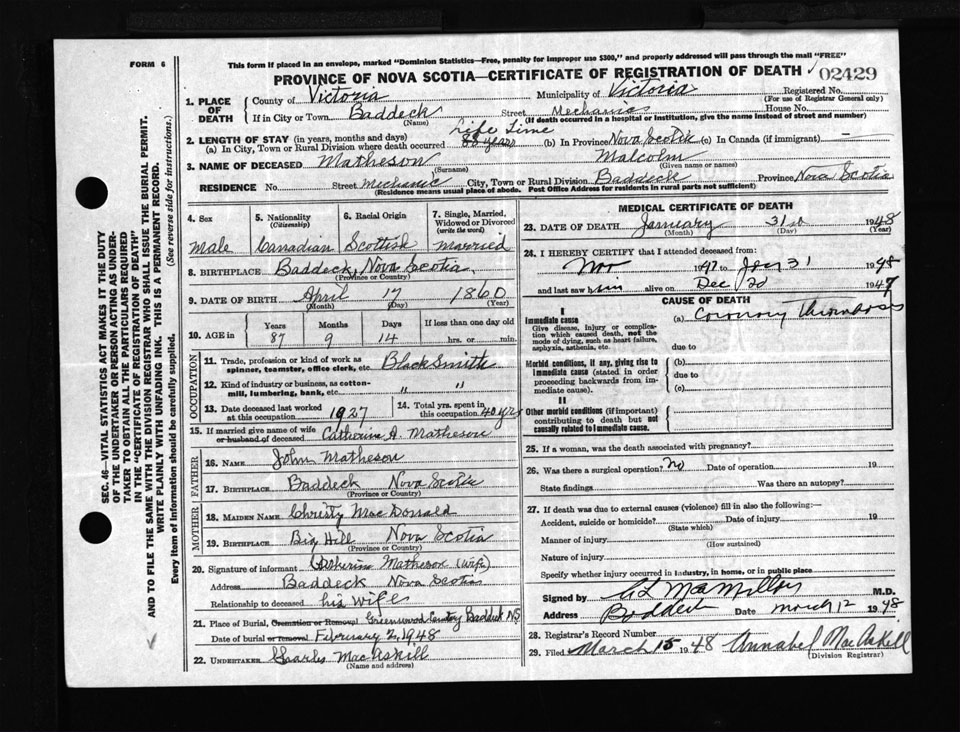 FORM 6
This form if placed in an envelope, marked "Dominion Statistics—Free, penalty for improper use $300," and properly addressed will pass through the mail "FREE"
PROVINCE OF NOVA SCOTIA—CERTIFICATE OF REGISTRATION OF DEATH 02429
1. PLACE OF DEATH
County of Victoria Municipality of Victoria Registered No.
(For use of Registrar General only)
If in City or Town Baddeck Street Mechanic House No.
(Name) (If death occurred in a hospital or institution, give the name instead of street and number)
2. LENGTH OF STAY (in years, months and days) Life Time
(a) In City, Town or Rural Division where death occurred 88 years (b) In Province Nova Scotia (c) In Canada (if immigrant) —
3. NAME OF DECEASED Matheson Malcolm
(Surname) (Given name or names)
RESIDENCE No. Street Mechanic City, Town or Rural Division Baddeck Province Nova Scotia
(Residence means usual place of abode. Post Office Address for residents in rural parts not sufficient)
4. Sex Male
5. Nationality (Citizenship) Canadian
6. Racial Origin Scottish
7. Single, Married, Widowed or Divorced (write the word) Married
8. BIRTHPLACE Baddeck, Nova Scotia
(Province or Country)
9. DATE OF BIRTH April 17 1860
(Month) (Day) (Year)
10. AGE in Years 87 Months 9 Days 14 If less than one day old hrs. or min.
OCCUPATION
11. Trade, profession or kind of work as spinner, teamster, office clerk, etc. Black Smith
12. Kind of industry or business, as cotton-mill, lumbering, bank, etc. " "
13. Date deceased last worked at this occupation 1927
14. Total yrs. spent in this occupation 40 yrs
15. If married give name of wife or husband of deceased Catherine A. Matheson
FATHER
16. NAME John Matheson
17. BIRTHPLACE Baddeck Nova Scotia
(Province or Country)
MOTHER
18. MAIDEN NAME Christy MacDonald
19. BIRTHPLACE Big Hill Nova Scotia
(Province or Country)
20. Signature of informant Catherine Matheson (wife)
Address Baddeck Nova Scotia
Relationship to deceased his wife
21. Place of Burial, Cremation or Removal Greenwood Baddeck NS
Date of burial or removal February 2, 1948
22. UNDERTAKER Charles MacAskill
(Name and address)
MEDICAL CERTIFICATE OF DEATH
23. DATE OF DEATH January 31st 1948
(Month) (Day) (Year)
24. I HEREBY CERTIFY that I attended deceased from:
Nov 1947 to Jan 31 1948
and last saw him alive on Dec 20 1947
CAUSE OF DEATH
I
Immediate cause (a) Coronary Thrombosis
Give disease, injury or complication which caused death, not the mode of dying, such as heart failure, asphyxia, asthenia, etc.
due to
Morbid conditions, if any, giving rise to immediate cause (stated in order proceeding backwards from immediate cause).
(b)
due to
(c)
II
Other morbid conditions (if important) contributing to death but not causally related to immediate cause.
25. If a woman, was the death associated with pregnancy?
26. Was there a surgical operation? No Date of operation 19
State findings Was there an autopsy?
27. If death was due to external causes (violence) fill in also the following:—
Accident, suicide or homicide? Date of injury 19
(State which)
Manner of injury
(How sustained)
Nature of injury
Specify whether injury occurred in industry, in home, or in public place
Signed by MacMillan M.D.
Address Baddeck Date March 12 1948
28. Registrar's Record Number
29. Filed March 15 1948 Annabel MacAskill
(Division Registrar)
SEC. 46—VITAL STATISTICS ACT MAKES IT THE DUTY
OF THE UNDERTAKER OR PERSON ACTING AS UNDER-
TAKER TO OBTAIN ALL THE PARTICULARS REQUIRED
IN THE "CERTIFICATE OF REGISTRATION OF DEATH"
AND TO FILE THE SAME WITH THE DIVISION REGISTRAR WHO SHALL ISSUE THE BURIAL PERMIT.
WRITE PLAINLY WITH UNFADING INK. THIS IS A PERMANENT RECORD.
Every item of information should be carefully supplied. (See reverse side for instructions.)